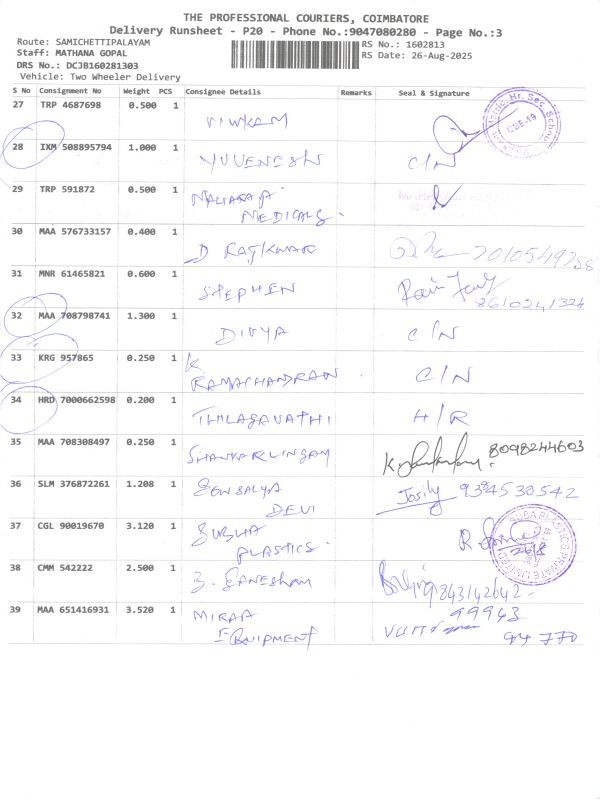 THE PROFESSIONAL COURIERS, COIMBATORE
Delivery Runsheet - P20 - Phone No.:9047080280 - Page No.:3
Route: SAMICHETTIPALAYAM
RS No.: 1602813
Staff: MATHANA GOPAL
RS Date: 26-Aug-2025
DRS No.: DCJB160281303
Vehicle: Two Wheeler Delivery
S No Consignment No Weight PCS Consignee Details Remarks Seal & Signature
27 TRP 4687698 0.500 1
28 IXM 508895794 1.000 1 YUVENESH C/N
29 TRP 591872 0.500 1
MEDICALS
30 MAA 576733157 0.400 1 D RAJKUMAR 7010549758
31 MNR 61465821 0.600 1 STEPHEN
8610241324
32 MAA 708798741 1.300 1 DIVYA C/N
33 KRG 957865 0.250 1 K
RAMACHANDRAN C/N
34 HRD 7000662598 0.200 1 THILAGAVATHI H/R
35 MAA 708308497 0.250 1 SHANKARLINGAM 8098244603
36 SLM 376872261 1.208 1 GOWSALYA Josily 9384530542
DEVI
37 CGL 90019670 3.120 1 SUBHA
PLASTICS. 26/8
38 CMM 542222 2.500 1 GANESHAN 9843142642
39 MAA 651416931 3.520 1 MIRAA 99943
EQUIPMENT 94 770